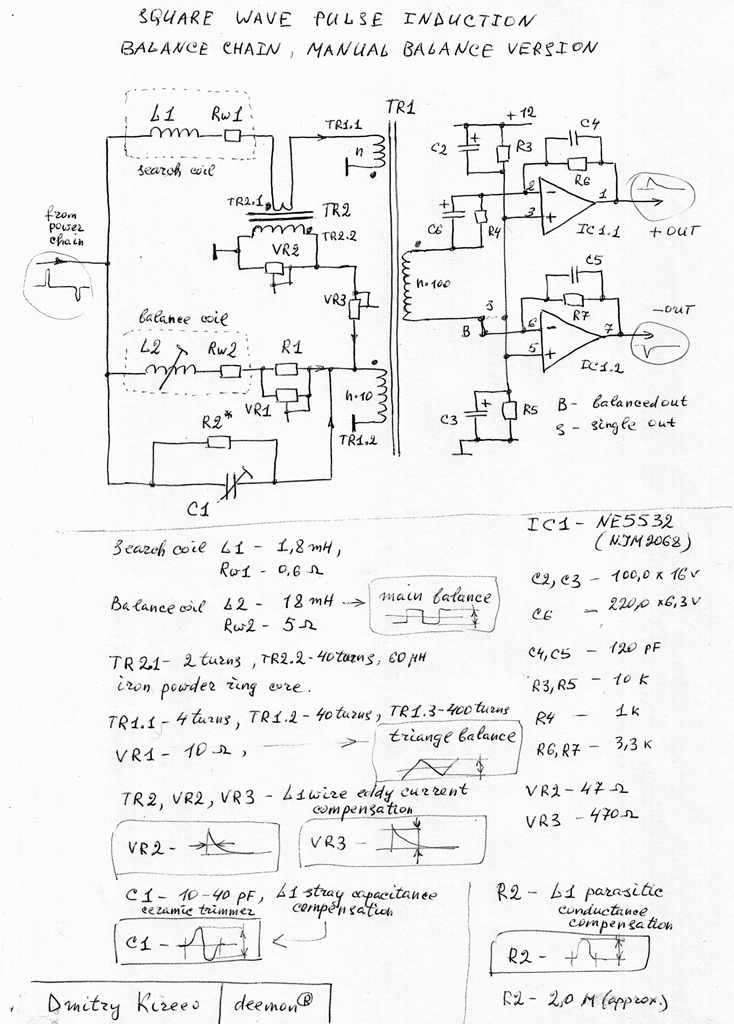 SQUARE WAVE PULSE INDUCTION
BALANCE CHAIN, MANUAL BALANCE VERSION
L1 Rw1
search coil
TR1.1
n
TR1
TR2.1
TR2
TR2.2
VR2
VR3
from
power
chain
balance coil
L2 Rw2
R1
VR1
R2*
C1
n·10
TR1.2
n·100
+12
C2
R3
C6
R4
C4
R6
2
3
1
IC1.1
+OUT
S
B
C5
R7
6
5
7
IC1.2
-OUT
C3
R5
B - balanced out
S - single out
Search coil L1 - 1,8 mH,
Rw1 - 0,6 Ω
Balance coil L2 - 18 mH
Rw2 - 5 Ω
main balance
TR2.1 - 2 turns, TR2.2 - 40 turns, 60 μH
iron powder ring core.
TR1.1 - 4 turns, TR1.2 - 40 turns, TR1.3 - 400 turns
VR1 - 10 Ω,
triange balance
TR2, VR2, VR3 - L1 wire eddy current
compensation
VR2 -
VR3 -
C1 - 10-40 pF, L1 stray capacitance
ceramic trimmer compensation
C1 -
IC1 - NE5532
(NJM2068)
C2, C3 - 100,0 x 16 v
C6 - 220,0 x 6,3 v
C4, C5 - 120 pF
R3, R5 - 10 K
R4 - 1 K
R6, R7 - 3,3 K
VR2 - 47 Ω
VR3 - 470 Ω
R2 - L1 parasitic
conductance
compensation
R2 -
R2 - 2,0 M (approx.)
Dmitry Kireev deemon®